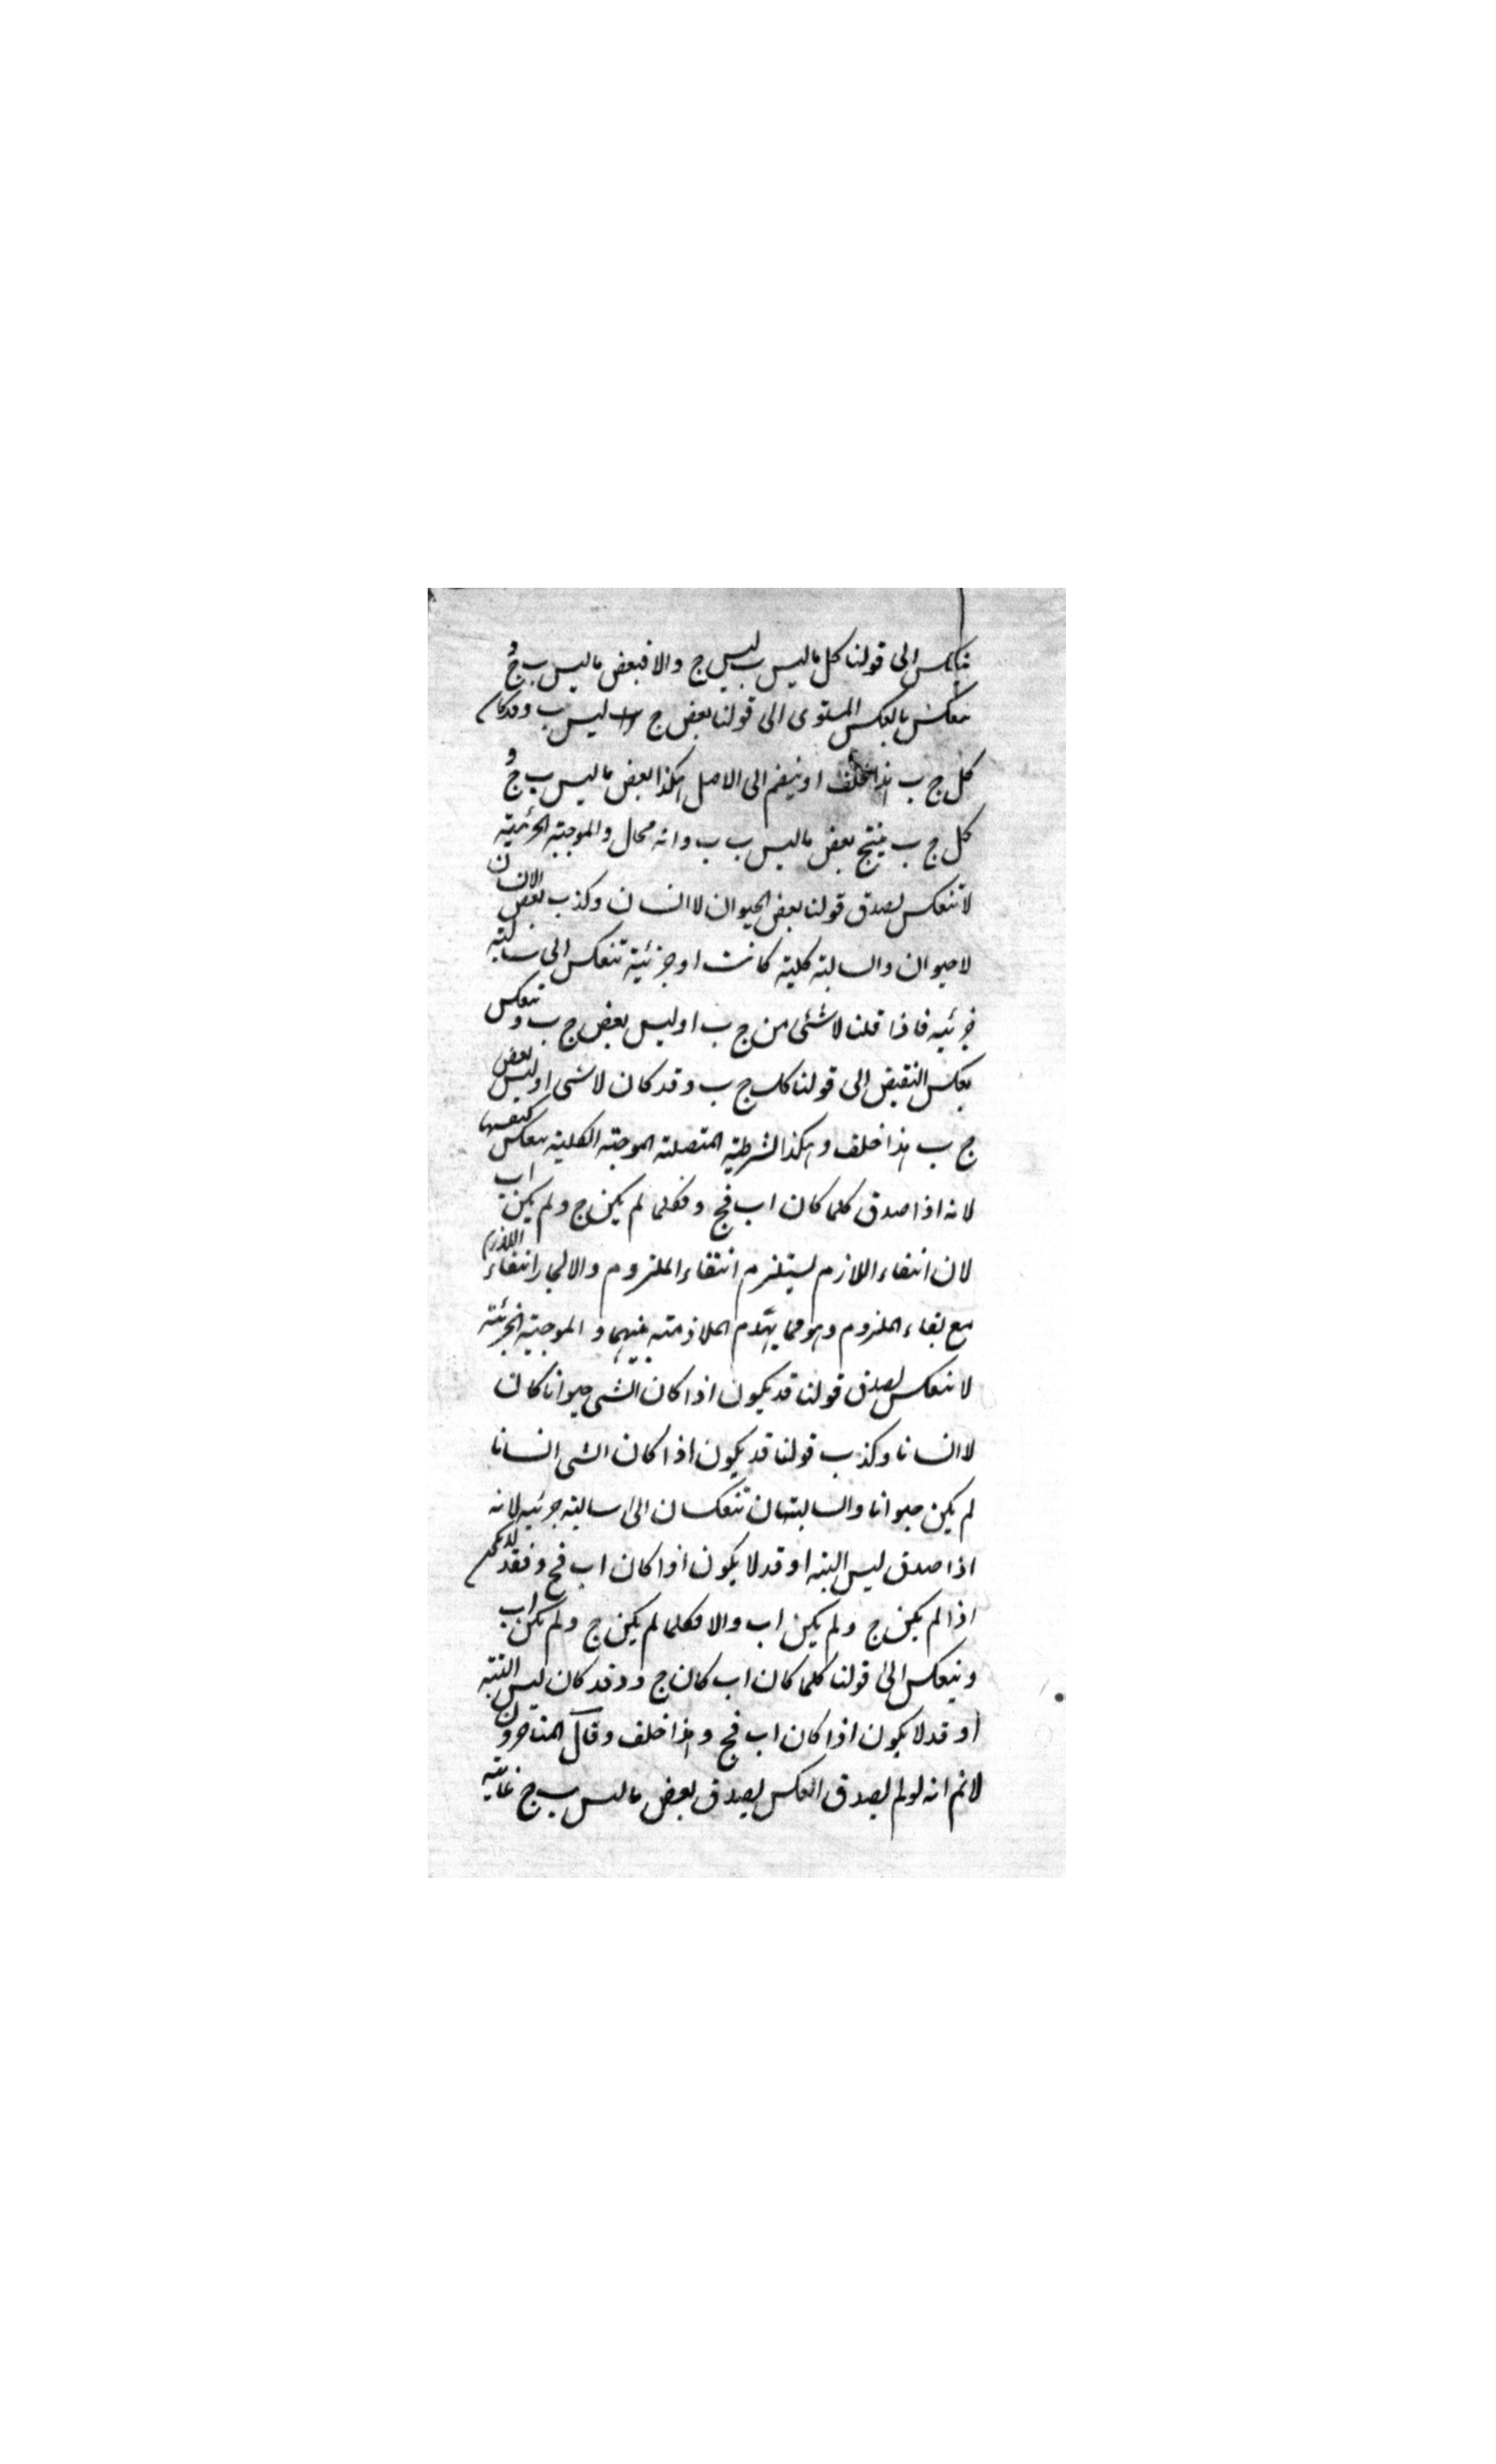 ينعكس الى قولنا كل ما ليس ب ليس ج والا فبعض ما ليس ب ج و
ينعكس بالعكس المستوى الى قولنا بعض ج ليس ب وقد كان
كل ج ب هذا خلف او ينضم الى الاصل هكذا بعض ما ليس ب ج و
كل ج ب ينتج بعض ما ليس ب ب وانه محال والموجبة الجزئية
لا تنعكس لصدق قولنا بعض الحيوان لا انسان وكذب بعض الانسان
لا حيوان والسالبة كلية كانت او جزئية تنعكس الى سالبة
جزئية فاذا قلنا لا شئ من ج ب او ليس بعض ج ب و تنعكس
بعكس النقيض الى قولنا كل ج ب وقد كان لا شى او ليس بعض
ج ب هذا خلف وهكذا الشرطية المتصلة الموجبة الكلية تنعكس كنفسها
لانه اذا صدق كلما كان ا ب فج و فكلما لم يكن ج و لم يكن ا ب
لان انتفاء اللازم يستلزم انتفاء الملزوم والا لجاز انتفاء اللازم
مع بقاء الملزوم وهو مما يهدم الملازمة بينهما والموجبة الجزئية
لا تنعكس لصدق قولنا قد يكون اذا كان الشى حيوانا كان
لا انسانا وكذب قولنا قد يكون اذا كان الشى انسانا
لم يكن حيوانا والسالبتان تنعكسان الى سالبة جزئية لانه
اذا صدق ليس البتة او قد لا يكون اذا كان ا ب فج و فقد
اذا لم يكن ج و لم يكن ا ب والا فكلما لم يكن ج و لم يكن ا ب
وينعكس الى قولنا كلما كان ا ب كان ج و وقد كان ليس البتة
او قد لا يكون اذا كان ا ب فج و هذا خلف وقال المتاخرون
لانم انه لو لم يصدق العكس لصدق بعض ما ليس ب ج غايته